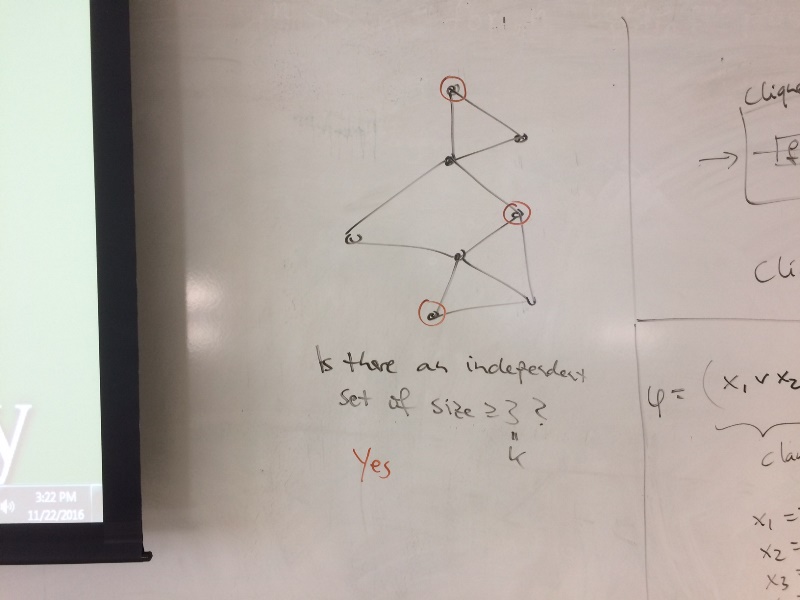 y
3:22 PM
11/22/2016
Is there an independent
set of size ≥ 3 ?
=
k
Yes
Clique
f
Cli
φ = ( x₁ ∨ x₂
clau
x₁ =
x₂ =
x₃